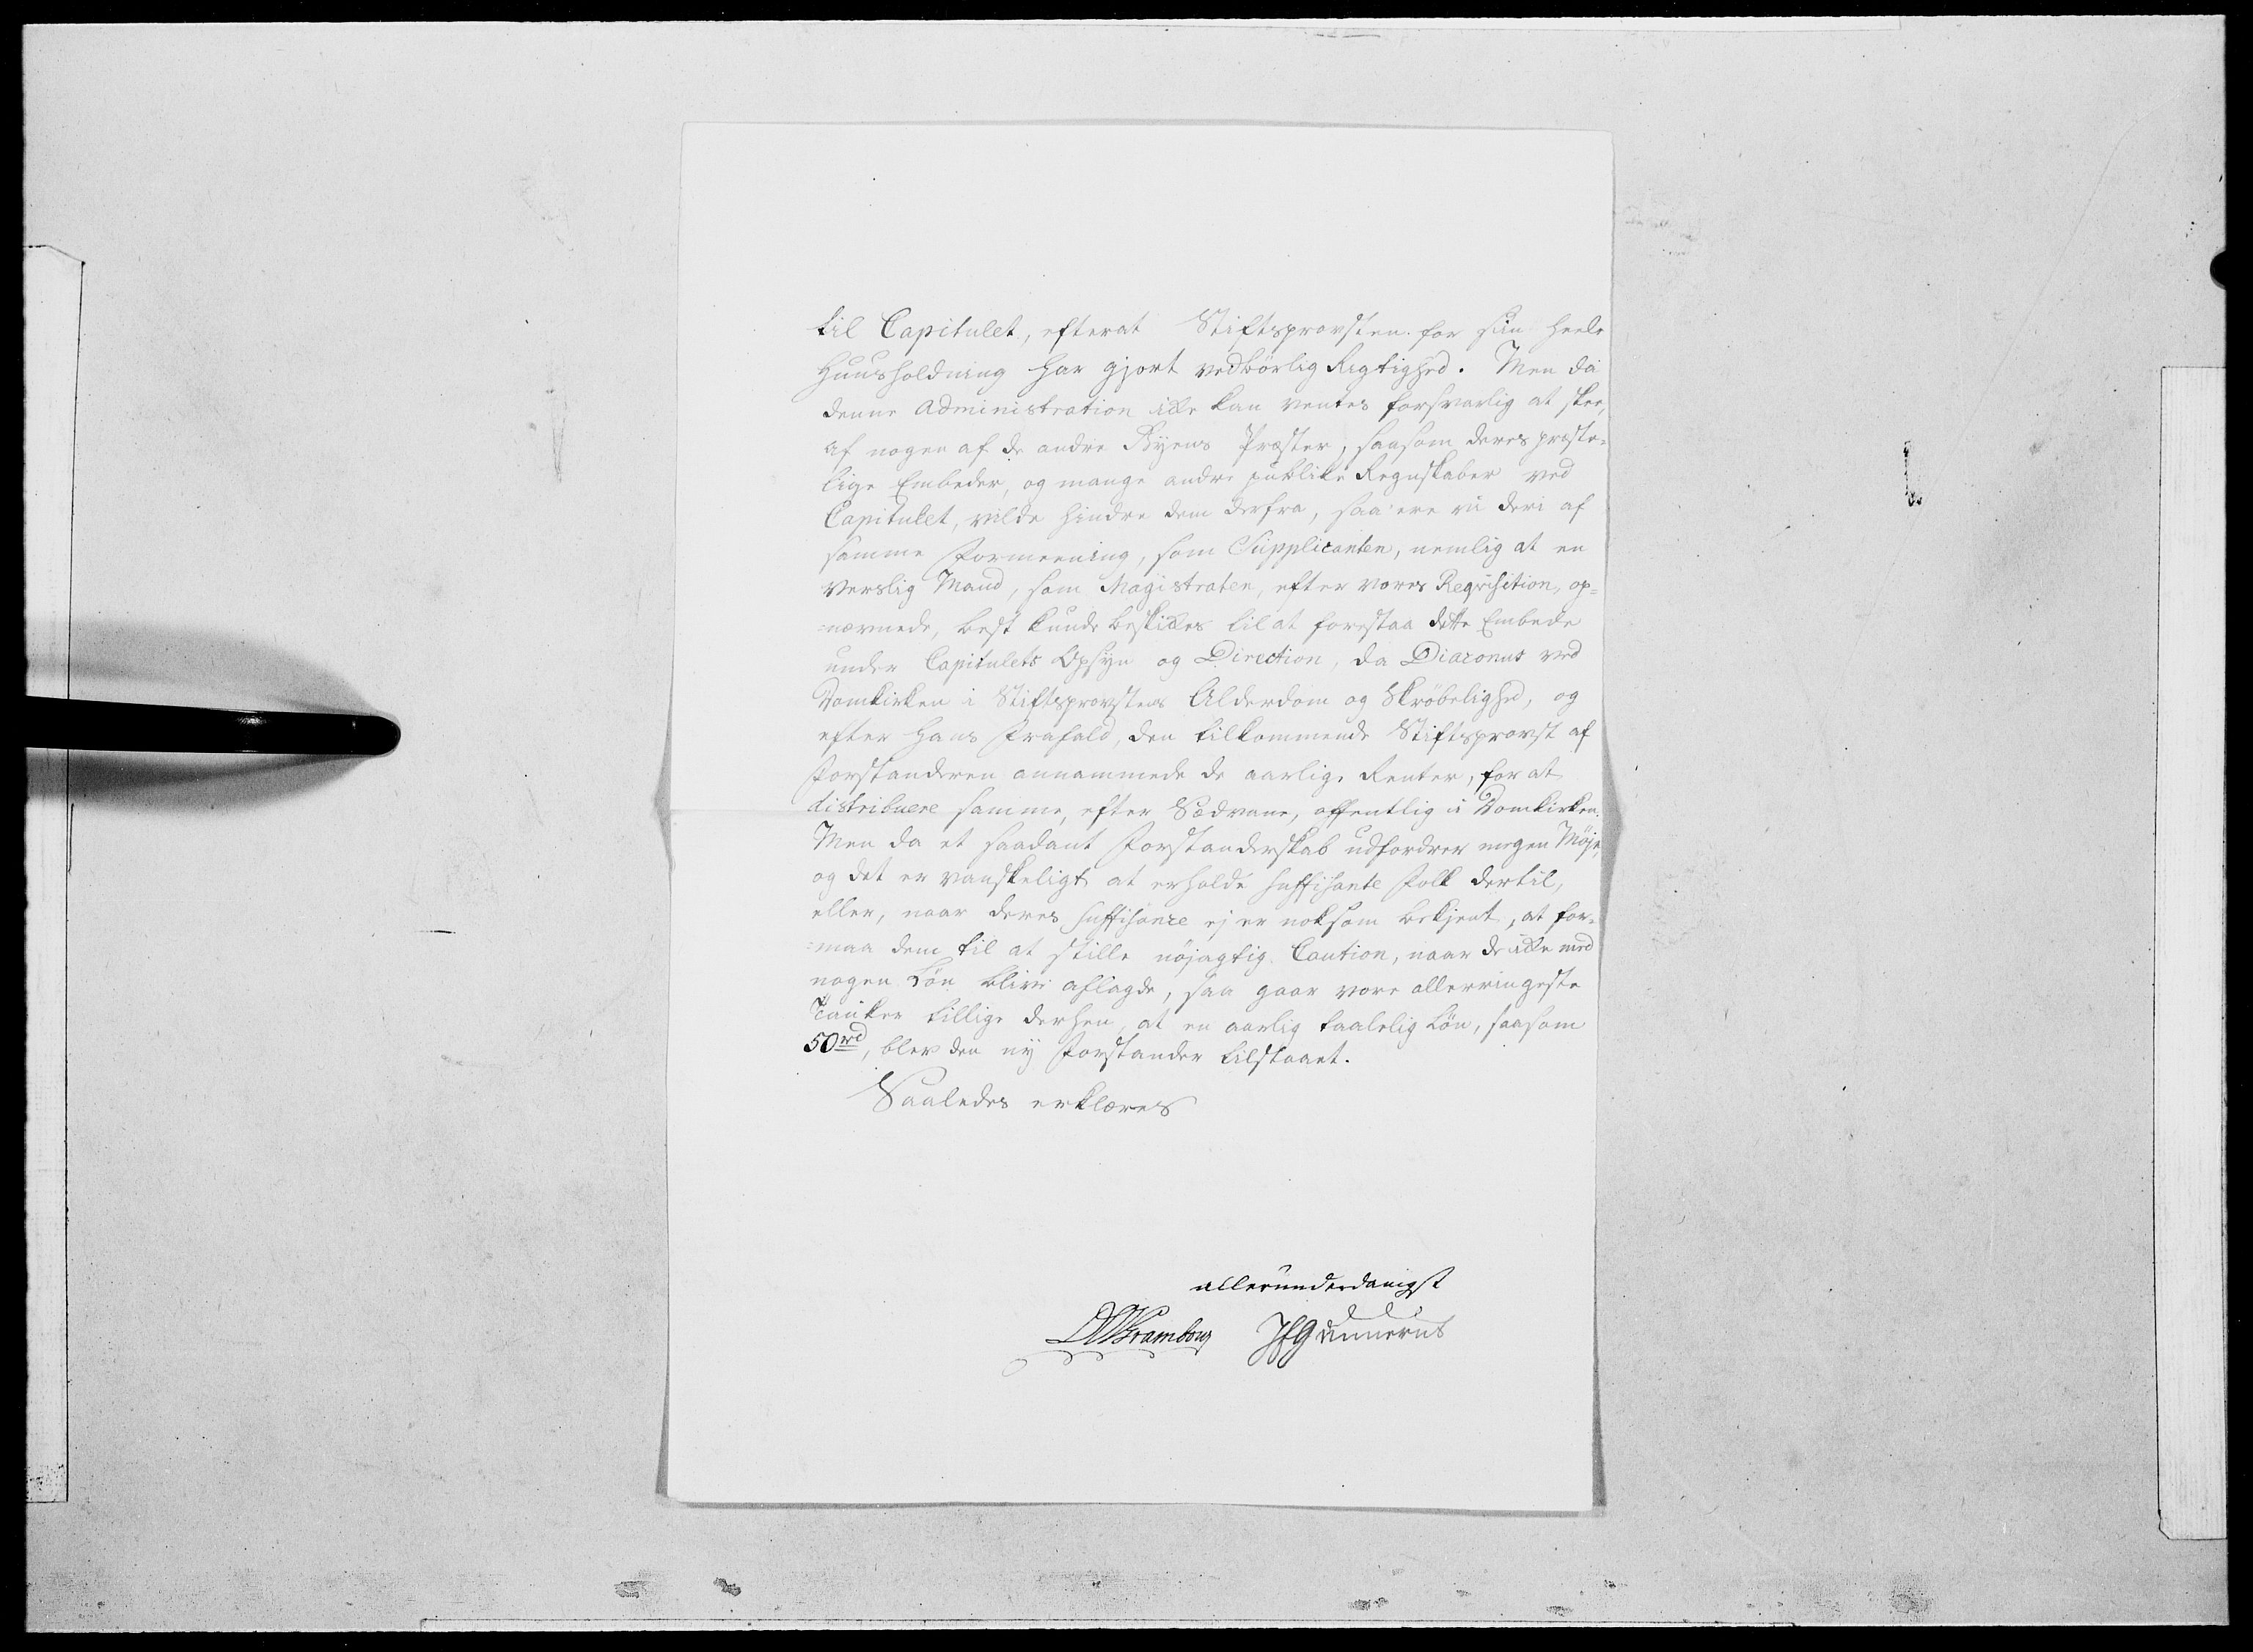 til Capitulet, efterat Stiftsprovsten for sin heele
Huusholdning har gjort vedbörlig Rigtighed. Men da
denne Administration ikke kan ventes forsvarlig at skee,
af nogen af de andre Byens Præster, saasom deres præste-
lige Embeder, og mange andre publike Regnskaber ved
Capitulet, vilde hindre dem derfra, saa ere vi deri af
samme Formeening, som Supplicanten, nemlig at en
verslig Mand, som Magistraten, efter vores Reqvisition, op-
=nævnede, best kunde beskikkes til at forestaa dette Embede
under Capitulets Opsyn og Direction, da Diaconus ved
Domkirken i Stiftsprovstens Alderdom og Skröbelighed, og
efter hans Frafald, den tilkommende Stiftsprovst af
Forstanderen annammede de aarlige Renter, for at
distribuere samme, efter Sædvane, offentlig i Domkirken.
Men da et saadant Forstanderskab udfordrer megen Möje,
og det er vanskeligt at erholde suffisante Folk dertil,
eller, naar deres suffisance ej er noksom bekjent, at for-
=maa dem til at stille nöjagtig Caution, naar de ikke med
nogen Lön blive aflagde, saa gaar vore allerringeste
Tanker tillige derhen, at en aarlig taalelig Lön, saasom
50 rd, blev den ny Forstander tilstaaet.
Saaledes erklæres
allerunderdanigst
Frambourg JEGunnerus